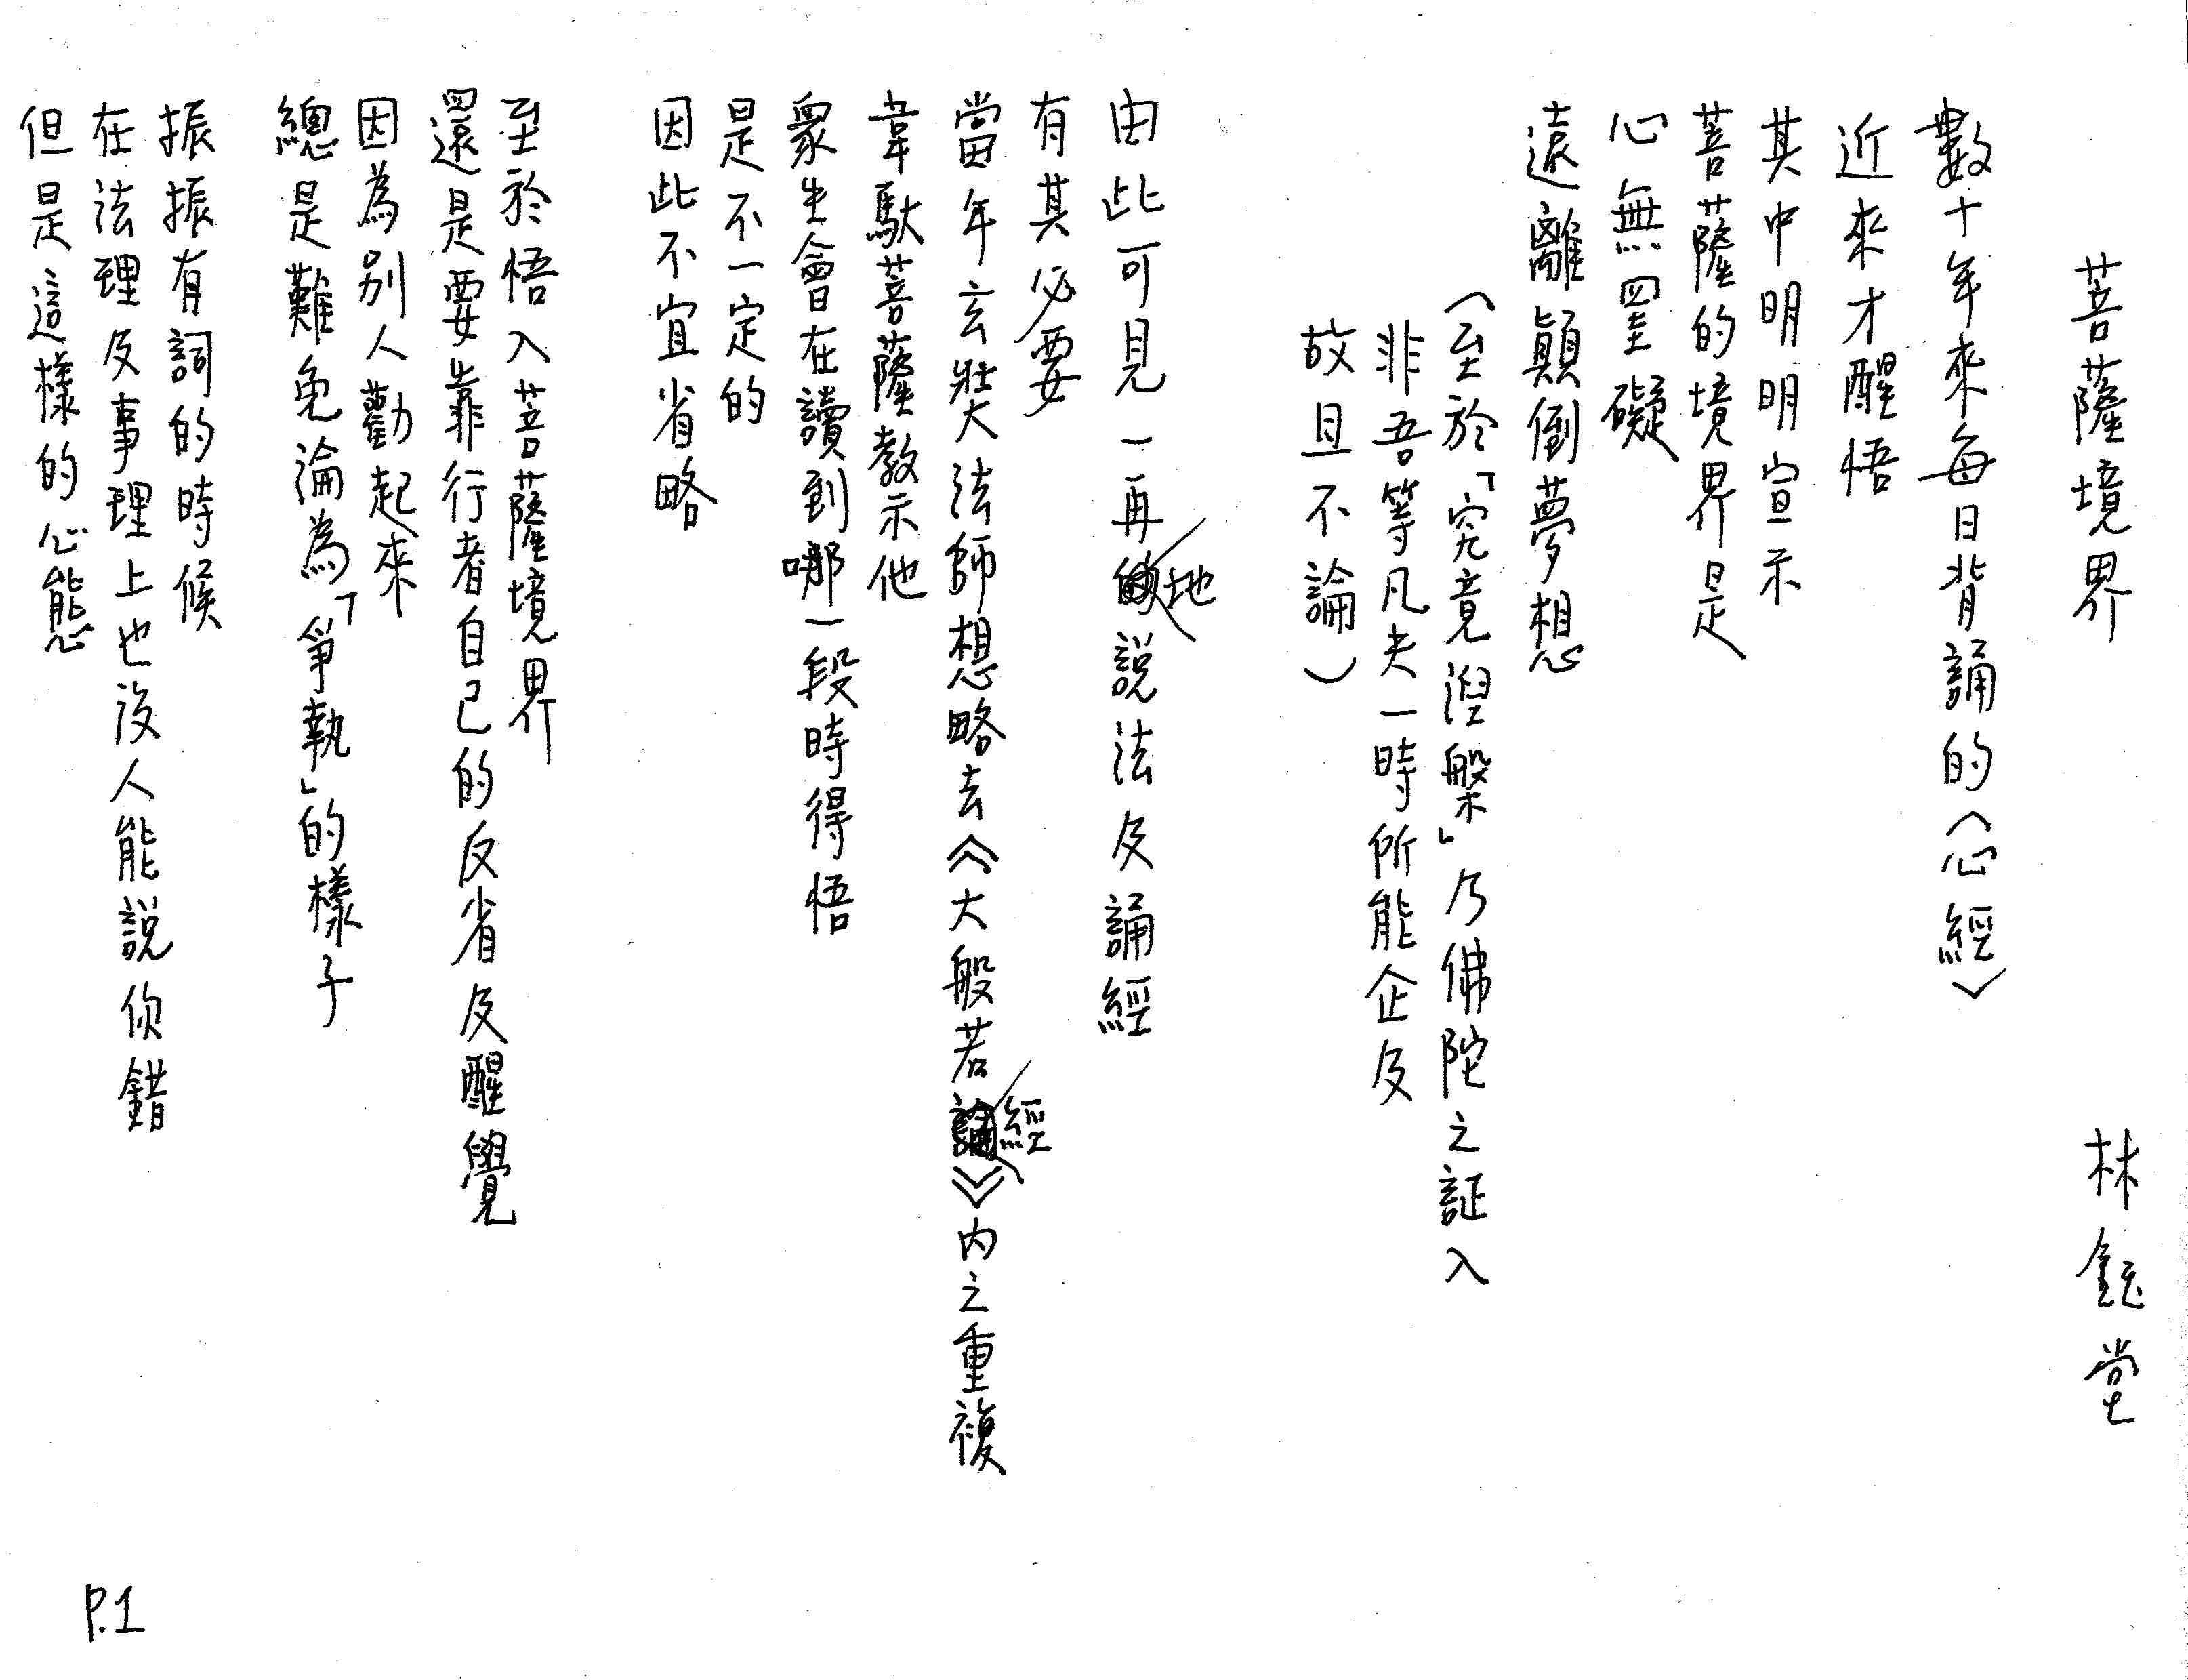 菩薩境界　林鈺堂
數十年來每日背誦的〈心經〉
近來才醒悟
其中明明宣示
菩薩的境界是
心無罣礙
遠離顛倒夢想
（至於「究竟涅槃」乃佛陀之証入
非吾等凡夫一時所能企及
故且不論）
由此可見一再地說法及誦經
有其必要
當年玄奘大法師想略去《大般若經》內之重複
韋馱菩薩教示他
眾生會在讀到哪一段時得悟
是不一定的
因此不宜省略
至於悟入菩薩境界
還是要靠行者自己的反省及醒覺
因為別人勸起來
總是難免淪為「爭執」的樣子
振振有詞的時候
在法理及事理上也沒人能說你錯
但是這樣的心態
P.1